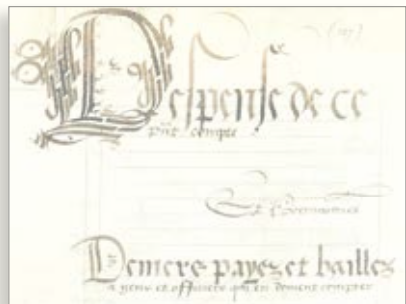 Despense de ce
pnt compte
Et
Deniers payez et bailles
a gens et officiers qui en doivent compter